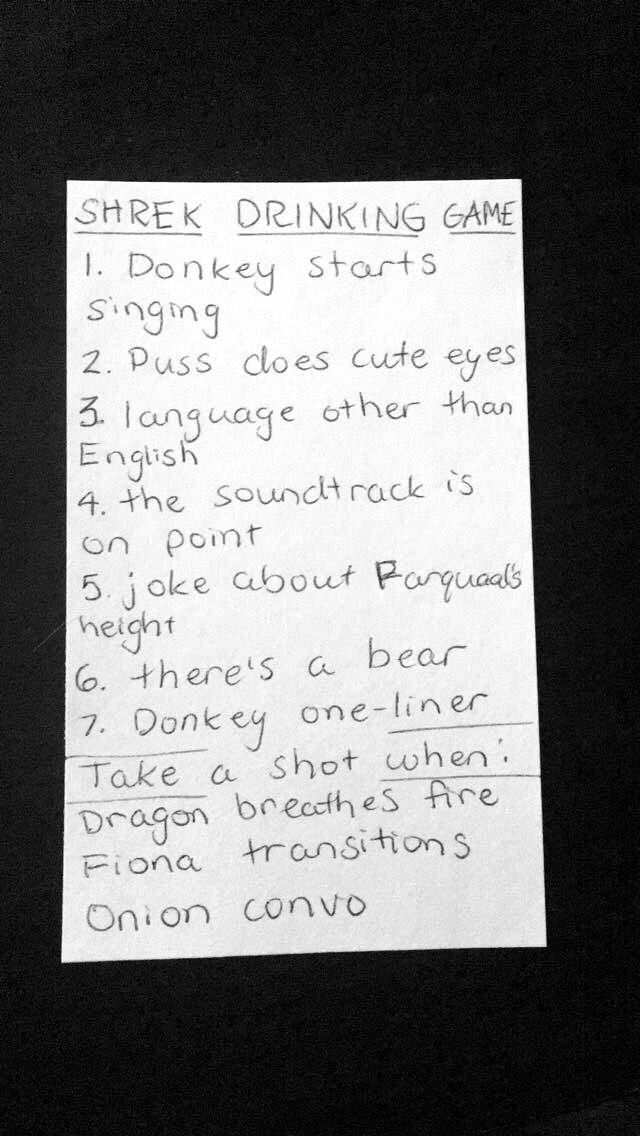 SHREK DRINKING GAME
1. Donkey starts
singing
2. Puss does cute eyes
3. language other than
English
4. the soundtrack is
on point
5. joke about Farquaal's
height
6. there's a bear
7. Donkey one-liner
Take a shot when:
Dragon breathes fire
Fiona transitions
Onion convo